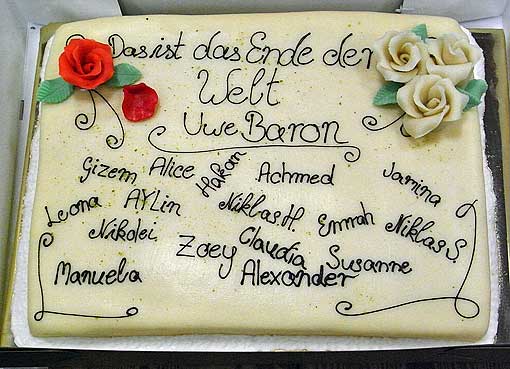 Das ist das Ende der
Welt
Uwe Baron
Gizem Alice Hakan Achmed Janina
Leona AYLin Niklas H. Emrah Niklas S.
Nikolei Zoey Claudia Susanne
Manuela Alexander